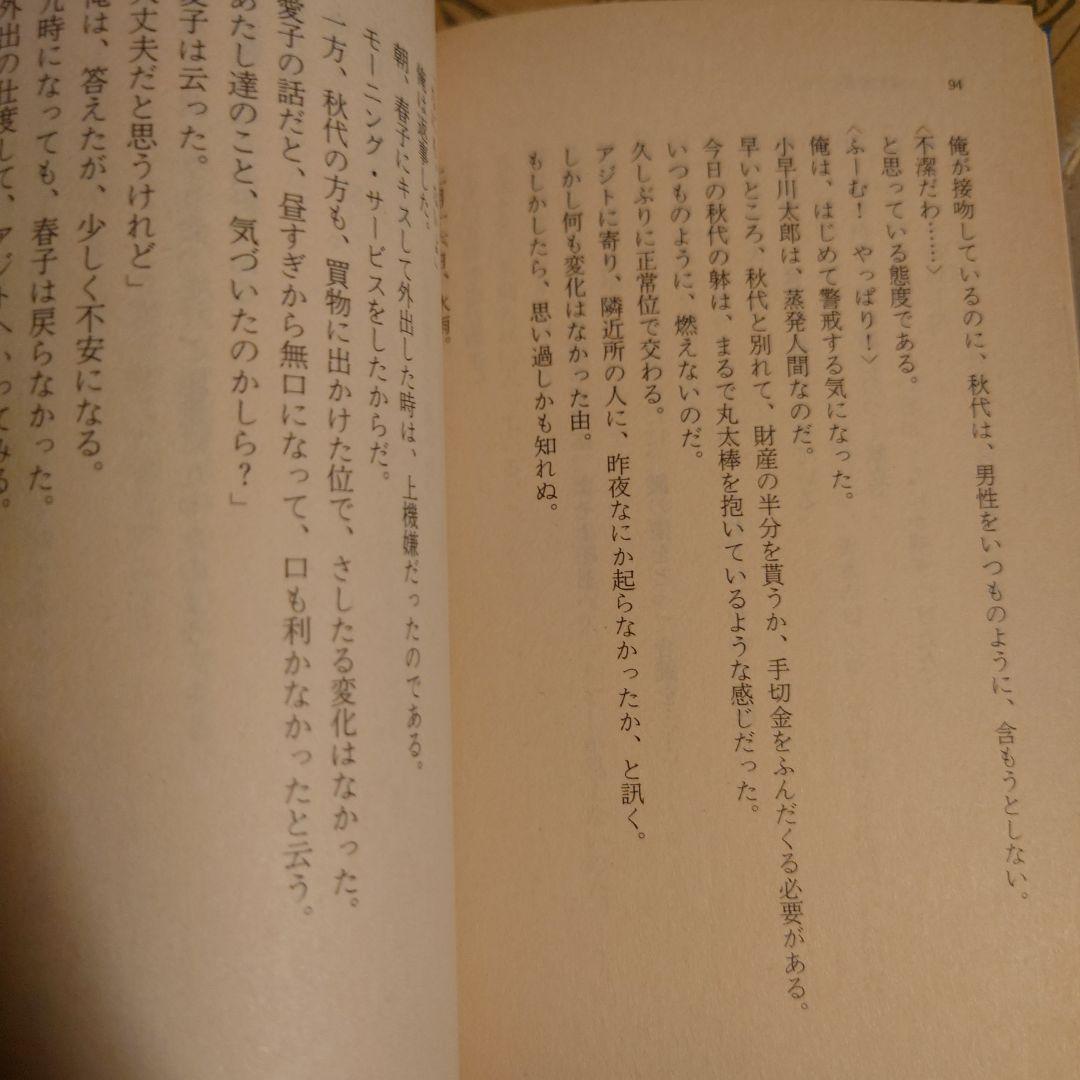 94
俺が接吻しているのに、秋代は、男性をいつものように、含もうとしない。
〈不潔だわ……〉
と思っている態度である。
〈ふーむ！　やっぱり！〉
俺は、はじめて警戒する気になった。
小早川太郎は、蒸発人間なのだ。
早いところ、秋代と別れて、財産の半分を貰うか、手切金をふんだくる必要がある。
今日の秋代の躰は、まるで丸太棒を抱いているような感じだった。
いつものように、燃えないのだ。
久しぶりに正常位で交わる。
アジトに寄り、隣近所の人に、昨夜なにか起らなかったか、と訊く。
しかし何も変化はなかった由。
もしかしたら、思い過しかも知れぬ。
俺は返事した。
朝、春子にキスして外出した時は、上機嫌だったのである。
モーニング・サービスをしたからだ。
一方、秋代の方も、買物に出かけた位で、さしたる変化はなかった。
愛子の話だと、昼すぎから無口になって、口も利かなかったと云う。
あたし達のこと、気づいたのかしら？」
愛子は云った。
大丈夫だと思うけれど」
俺は、答えたが、少しく不安になる。
九時になっても、春子は戻らなかった。
外出の仕度して、アジトへいってみる。